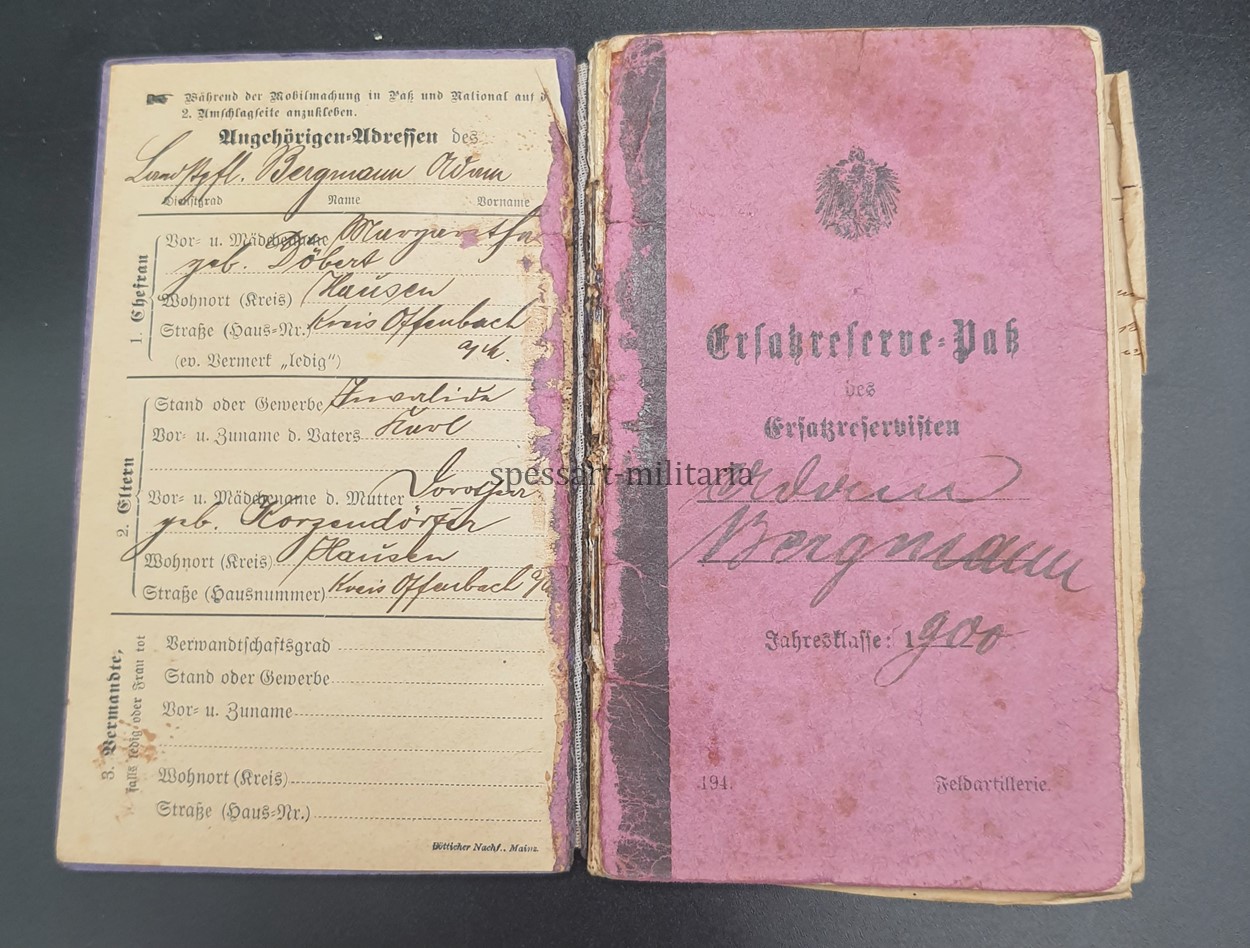 Während der Mobilmachung in Paß und National auf d
2. Umschlagseite anzukleben.
Angehörigen-Adressen des
Landstpfl. Bergmann Adam
Dienstgrad Name Vorname
1. Ehefrau
Vor- u. Mädchenname Margaretha
geb. Döbert
Wohnort (Kreis) Hausen
Straße (Haus-Nr.) Kreis Offenbach
a/M.
(ev. Vermerk „ledig“)
2. Eltern
Stand oder Gewerbe Invalide
Vor- u. Zuname d. Vaters Karl
Vor- u. Mädchename d. Mutter Dorothea
geb. Korzendörfer
Wohnort (Kreis) Hausen
Straße (Hausnummer) Kreis Offenbach a/M
3. Verwandte,
falls ledig oder Frau tot
Verwandtschaftsgrad
Stand oder Gewerbe
Vor- u. Zuname
Wohnort (Kreis)
Straße (Haus-Nr.)
Bötticher Nachf., Mainz.
Ersatzreserve-Paß
des
Ersatzreservisten
Adam
Bergmann
Jahresklasse: 1900
194. Feldartillerie.
spessart-militaria